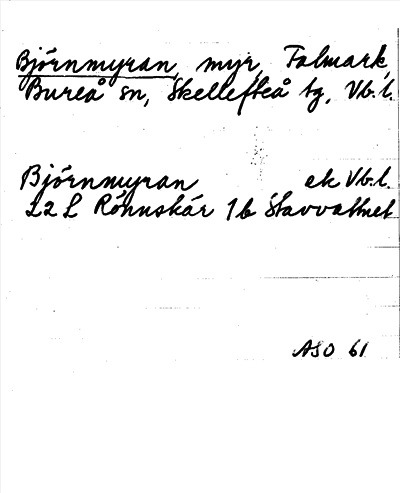 Björnmyran, myr, Falmark,
Bureå sn, Skellefteå tg, Vb. l.
Björnmyran ek Vb. l.
22 L Rönnskär 1 b Stavvattnet
ASO 61